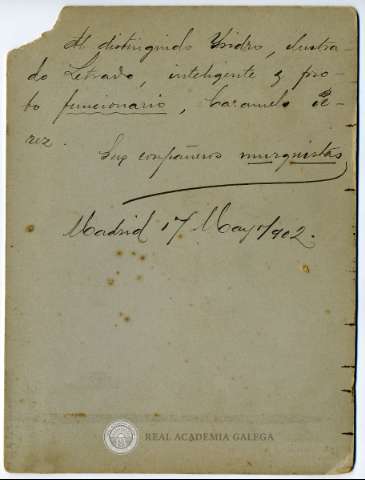 Al distinguido Ysidro, ilustra-
do Letrado, inteligente y pro-
bo funcionario, Caramelo Pe-
rez.
Sus compañeros murguistas
Madrid 17 Mayo/902.
REAL ACADEMIA GALEGA